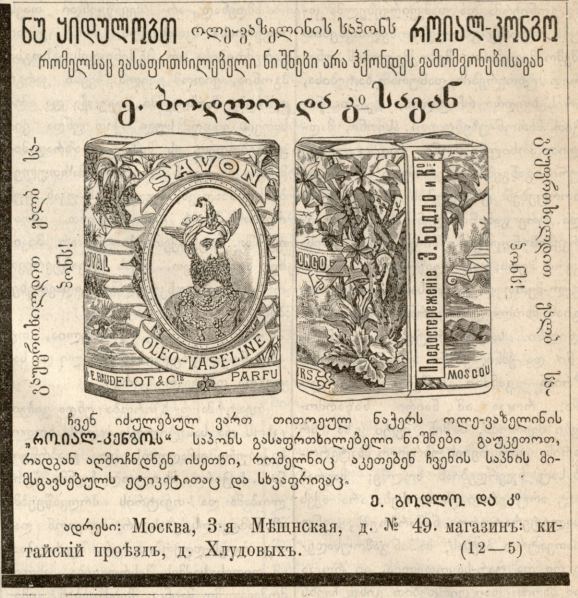 ნუ ყიდულობთ ოლე-ვაზელინის საპონს როიალ-კონგო
რომელსაც გასაფრთხილებელი ნიშნები არა ჰქონდეს გამომგონებისაგან
ე. ბოდლო და კო საგან
გაუფრთხილდით ყალბ სა-
პონს!
SAVON
OLEO-VASELINE
E. BAUDELOT & Cie PARFU
ONGO
RS
Предостереженіе Э. Бодло и Ко
MOSCOU
გაუფრთხილდით ყალბ სა-
პონს!
ჩვენ იძულებულ ვართ თითოეულ ნაჭერს ოლე-ვაზელინის
„როიალ-კენგოს“ საპონს გასაფრთხილებელი ნიშნები გაუკეთოთ,
რადგან აღმოჩნდნენ ისეთნი, რომელნიც აკეთებენ ჩვენის საპნის მი-
მსგავსებულს ეტიკეტითაც და სხვაფრივაც.
ე. ბოდლო და კო
ადრესი: Москва, 3-я Мѣщнская, д. № 49. магазинъ: ки-
тайскій проѣздъ, д. Хлудовыхъ. (12—5)